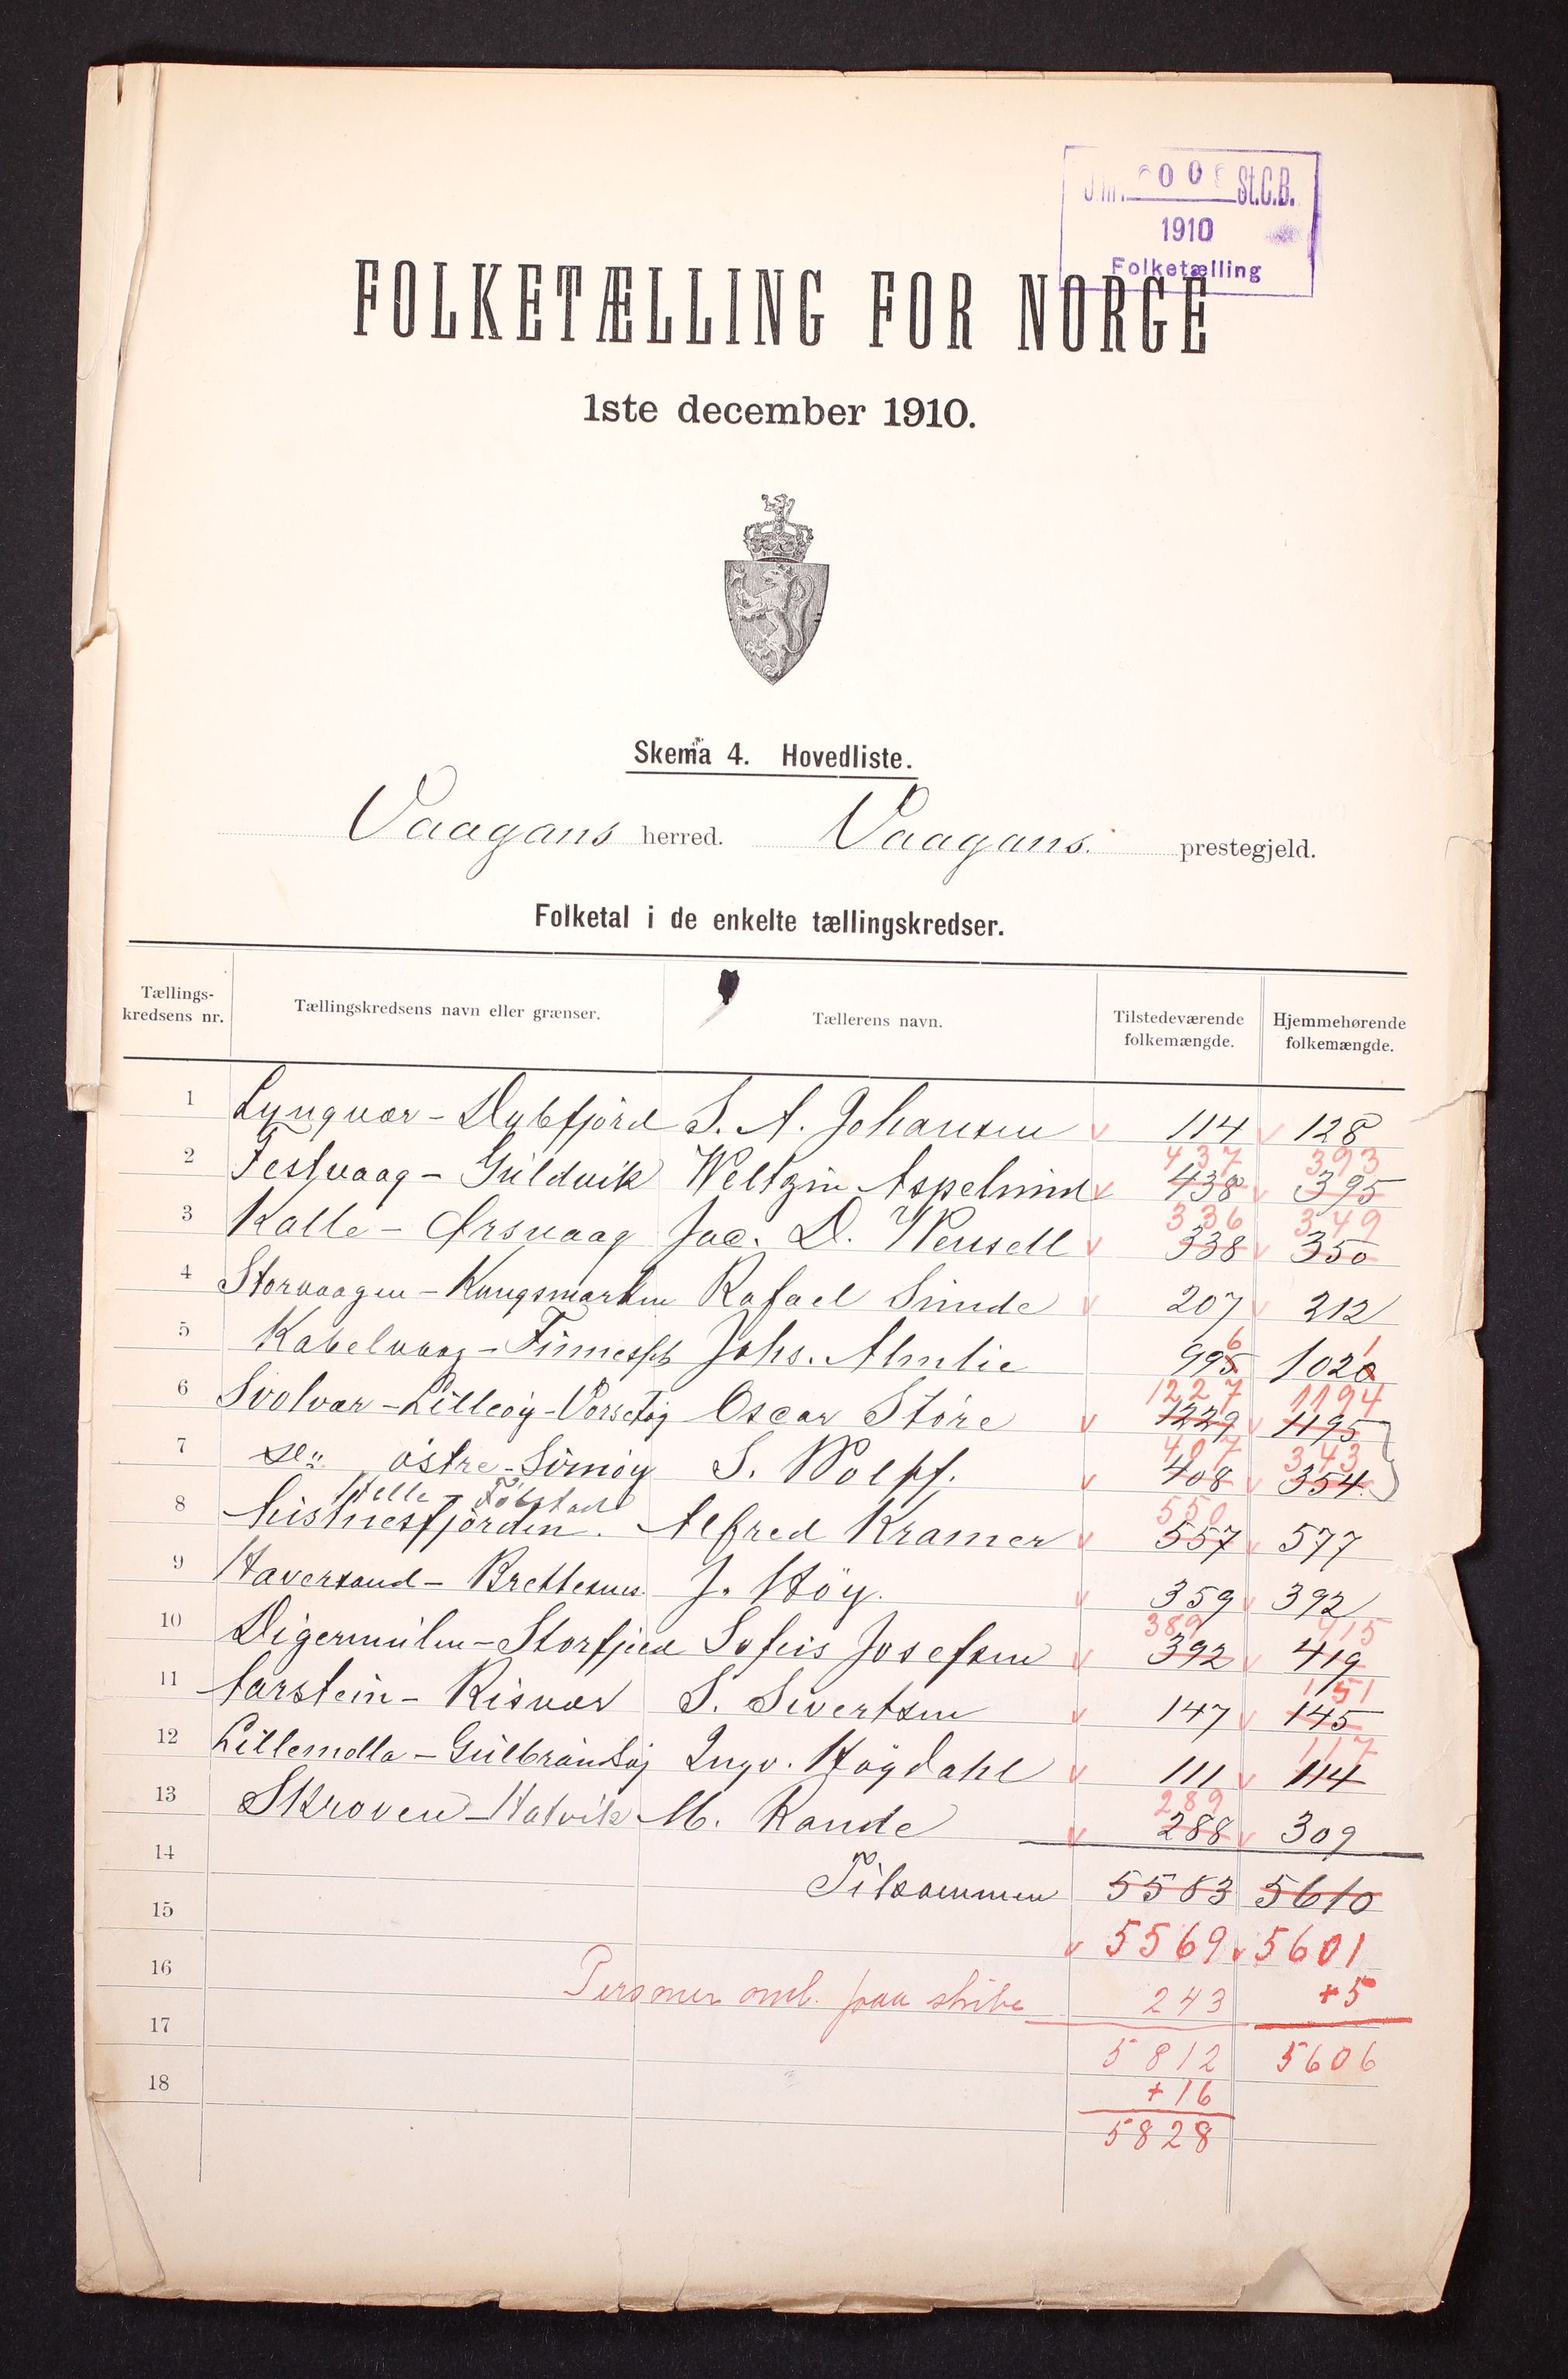 St.C.B.
1910
Folketælling
FOLKETÆLLING FOR NORGE
1ste december 1910.
Skema 4. Hovedliste.
Vaagans herred. Vaagans. prestegjeld.
Folketal i de enkelte tællingskredser.
Tællings-kredsens nr. Tællingskredsens navn eller grænser. Tællerens navn. Tilstedeværende folkemængde. Hjemmehørende folkemængde.
1 Lyngvær - Dybfjord S. A. Johansen v 114 v 128
437 393
2 Festvaag - Guldvik Weltzin Aspelund v 438 v 395
336 349
3 Kalle - Ørsvaag Jac. D. Wensell v 338 v 350
4 Storvaagen - Kongsmarken Rafael v 207 v 212
6 1
5 Kabelvaag - Johs. Almlie 995 1020
1227 1194
6 Svolvær - Lilleöy - Oscar Störe v 1229 v 1195
407 343
7 östre - S. Wolff. v 408 354
Helle -
550
8 Alfred Kramer v 557 v 577
9 Haversand - Brettesnes J. Höy. v 359 v 392
389 415
10 Digermulen - Storfjeld Josefsen v 392 v 419
151
11 Aarstein - Risvær S. Sivertsen v 147 v 145
117
12 Lillemolla - Gulbrandsöy Ingv. Högdahl v 111 v 114
289
13 Skroven - Hatvik M. Rande v 288 v 309
14 Tilsammen 5583 5610
15 v 5569 v 5601
16 Personer paa 243 +5
17 5812 5606
18 +16
5828